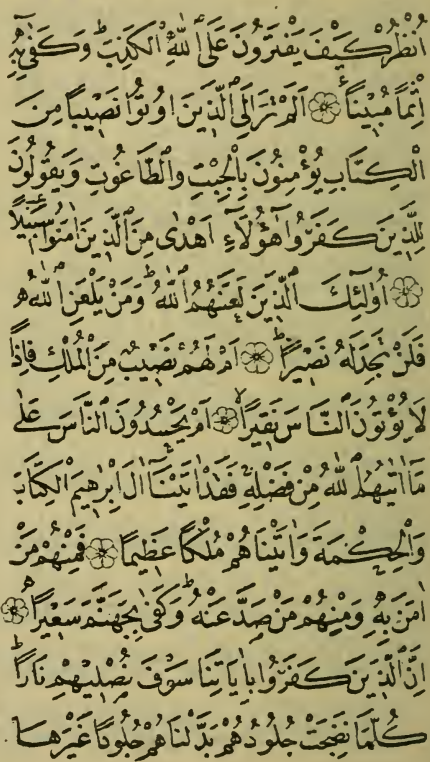 اُنْظُرْ كَيْفَ يَفْتَرُونَ عَلَى اللّٰهِ الْكَذِبَ ۖ وَكَفٰى بِهٖ
اِثْمًا مُبِينًا ۞ اَلَمْ تَرَ اِلَى الَّذِينَ اُوتُوا نَصِيبًا مِنَ
الْكِتَابِ يُؤْمِنُونَ بِالْجِبْتِ وَالطَّاغُوتِ وَيَقُولُونَ
لِلَّذِينَ كَفَرُوا هٰٓؤُلَآءِ اَهْدٰى مِنَ الَّذِينَ اٰمَنُوا سَبِيلًا
۞ اُولٰٓئِكَ الَّذِينَ لَعَنَهُمُ اللّٰهُ ۖ وَمَنْ يَلْعَنِ اللّٰهُ
فَلَنْ تَجِدَ لَهُ نَصِيرًا ۞ اَمْ لَهُمْ نَصِيبٌ مِنَ الْمُلْكِ فَاِذًا
لَا يُؤْتُونَ النَّاسَ نَقِيرًا ۞ اَمْ يَحْسُدُونَ النَّاسَ عَلٰى
مَآ اٰتٰيهُمُ اللّٰهُ مِنْ فَضْلِهٖ فَقَدْ اٰتَيْنَآ اٰلَ اِبْرٰهِيمَ الْكِتَابَ
وَالْحِكْمَةَ وَاٰتَيْنَاهُمْ مُلْكًا عَظِيمًا ۞ فَمِنْهُمْ مَنْ
اٰمَنَ بِهٖ وَمِنْهُمْ مَنْ صَدَّ عَنْهُ ۖ وَكَفٰى بِجَهَنَّمَ سَعِيرًا ۞
اِنَّ الَّذِينَ كَفَرُوا بِاٰيَاتِنَا سَوْفَ نُصْلِيهِمْ نَارًا
كُلَّمَا نَضِجَتْ جُلُودُهُمْ بَدَّلْنَاهُمْ جُلُودًا غَيْرَهَا